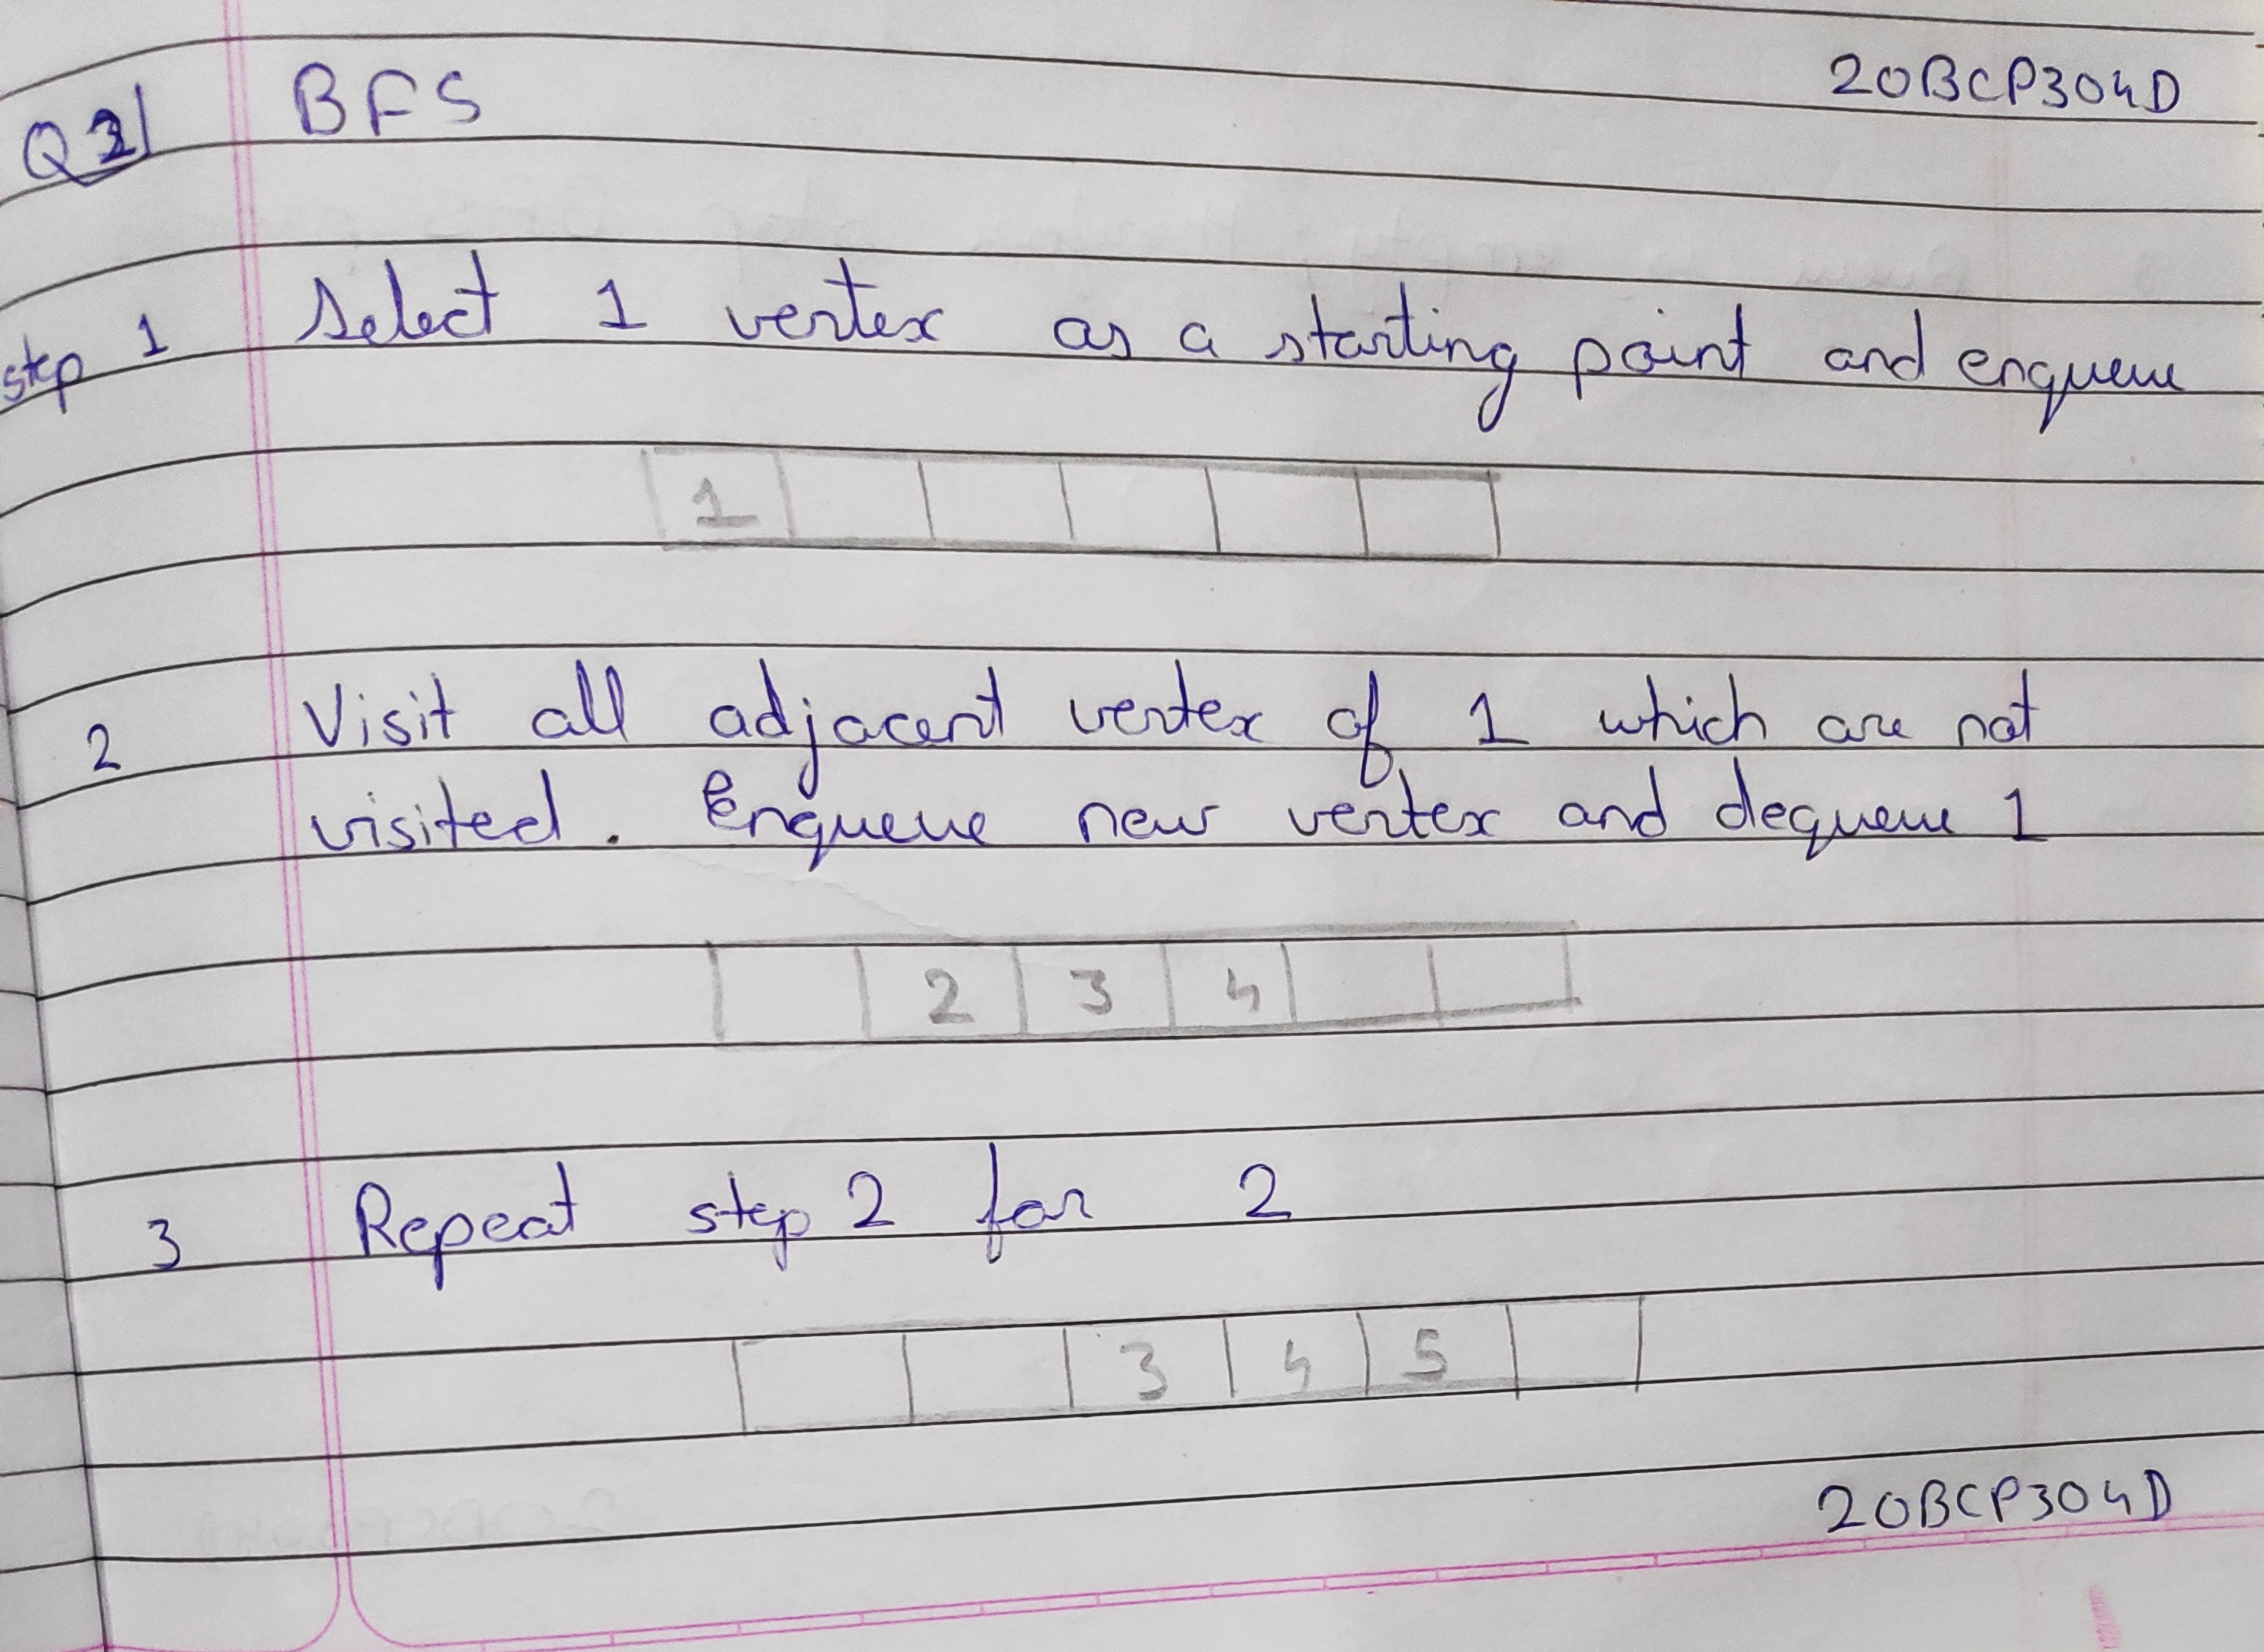 BFS 20BCP304D
step 1 Select 1 vertex as a starting point and enqueue
1
2 Visit all adjacent vertex of 1 which are not
visited. Enqueue new vertex and dequeue 1
2 3 4
3 Repeat step 2 for 2
3 4 5
20BCP304D